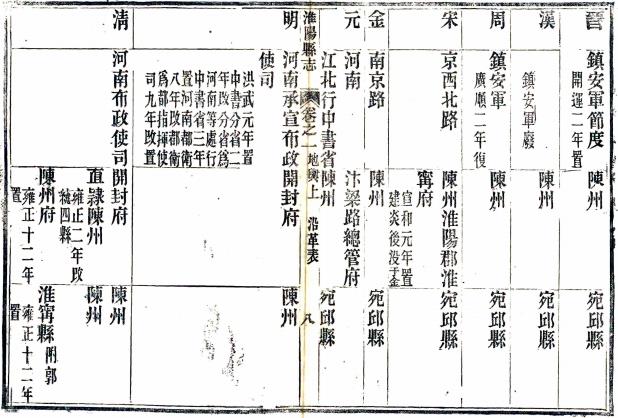 晉
鎮安軍節度
開運二年置
陳州
宛邱縣
漢
鎮安軍廢
陳州
宛邱縣
周
鎮安軍
廣順二年復
陳州
宛邱縣
宋
京西北路
陳州淮陽郡淮
甯府
宣和元年置
建炎後沒于金
宛邱縣
金
南京路
陳州
宛邱縣
元
河南
江北行中書省
汴梁路總管府
陳州
宛邱縣
淮陽縣志
卷之一
地輿上
沿革表
八
明
河南承宣布政
使司
洪武元年置
中書分省二
年改分省爲
河南等處行
中書省三年
置河南都衛
八年改都衛
爲都指揮使
司九年改置
開封府
陳州
清
河南布政使司
開封府
陳州
直隸陳州
雍正二年改
轄四縣
陳州
陳州府
雍正十二年
置
淮甯縣
附郭
雍正十二年
置